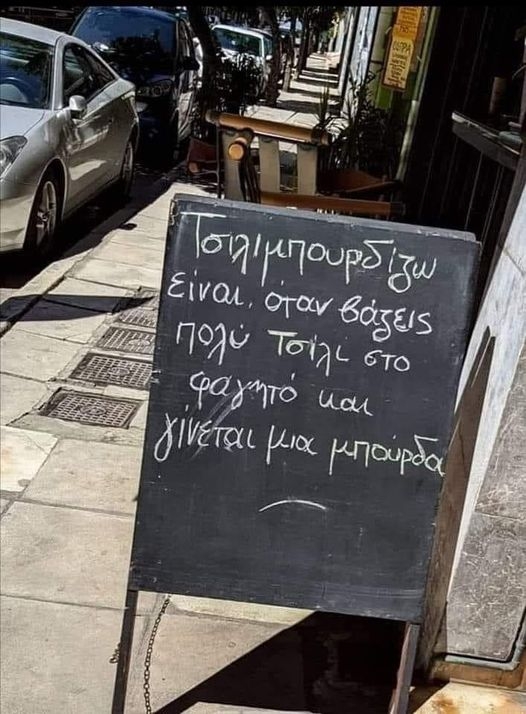 Τσιλιμπουρδίζω
είναι, όταν βάζεις
πολύ Τσίλι στο
φαγητό και
γίνεται μια μπούρδα